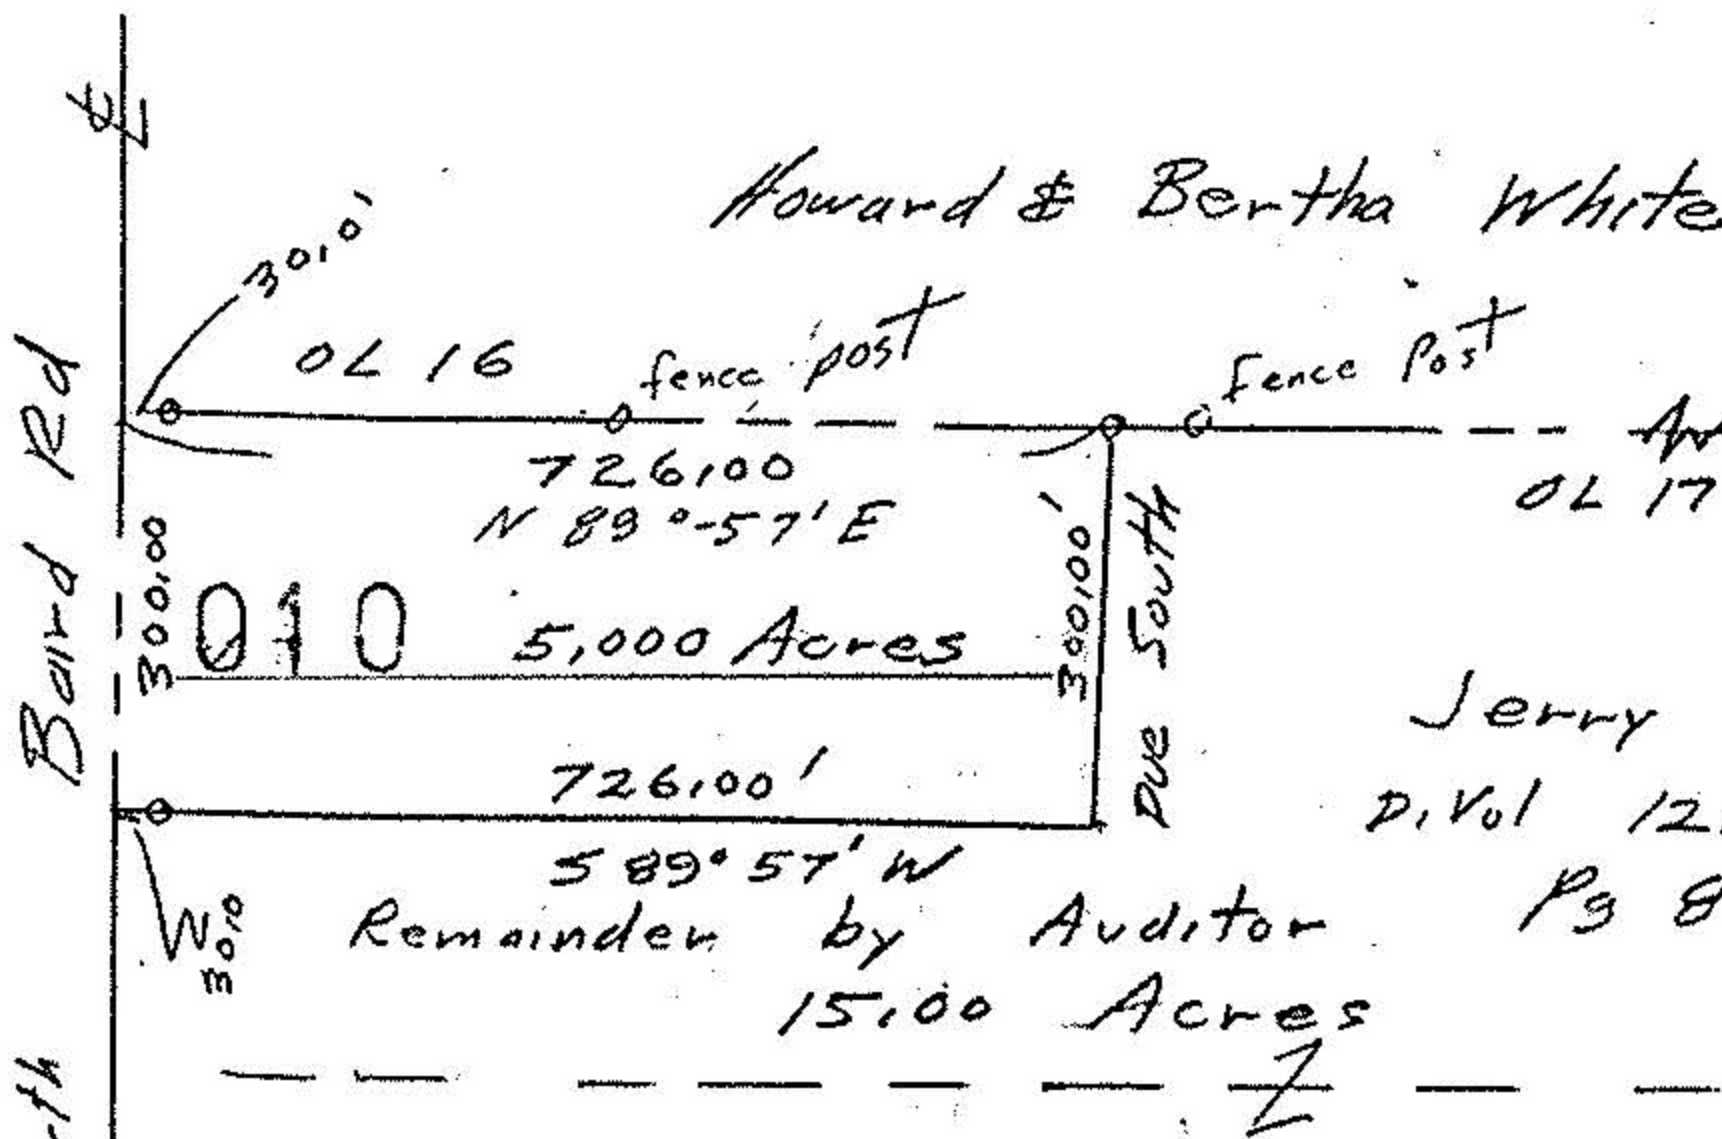 ℄
Howard & Bertha White
30.0'
OL 16
fence post
fence Post
726.00
N 89°-57' E
OL 17
Baird Rd
300.00
010
5.000 Acres
300.00'
Due South
Jerry
726.00'
S 89° 57' W
D. Vol 12
30.0
Remainder by Auditor
Pg 8
15.00 Acres
Z